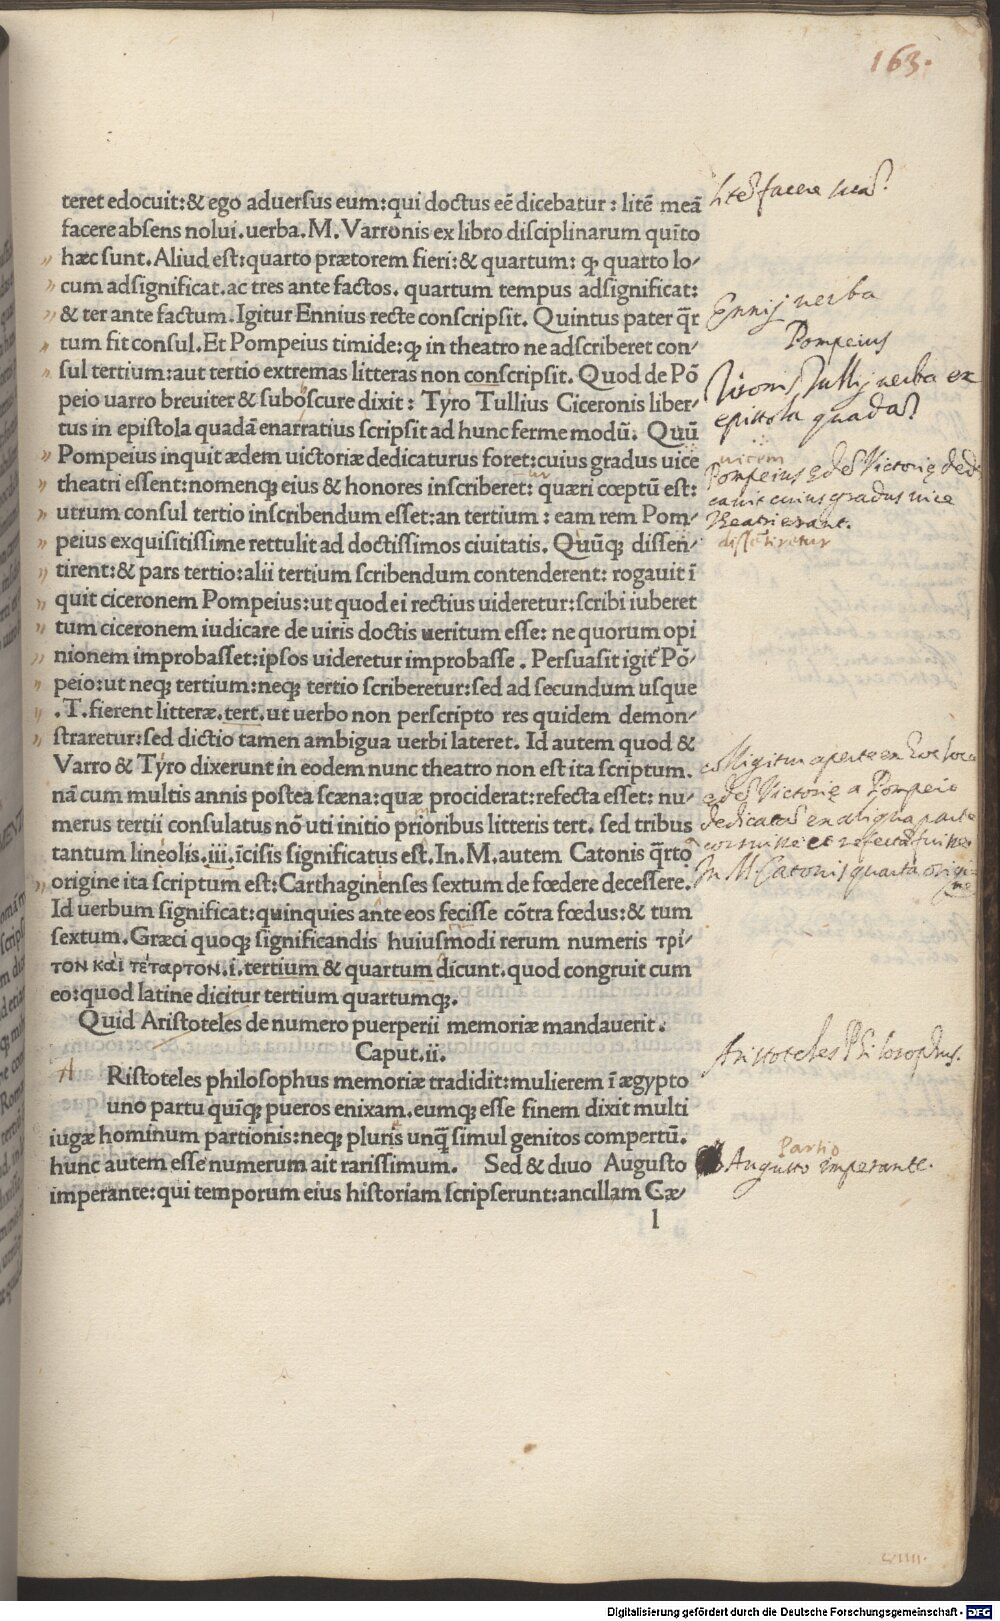 163.
teret edocuit:& ego aduersus eum:qui doctus eē dicebatur : litē meā
facere absens nolui.uerba.M.Varronis ex libro disciplinarum quīto
hæc sunt.Aliud est:quarto prætorem fieri:& quartum: ꝙ quarto lo-
cum adsignificat.ac tres ante factos. quartum tempus adsignificat:
& ter ante factum.Igitur Ennius recte conscripsit. Quintus pater q̄r
tum fit consul.Et Pompeius timide:ꝙ in theatro ne adscriberet con-
sul tertium:aut tertio extremas litteras non conscripsit. Quod de Pō
peio uarro breuiter & suboscure dixit : Tyro Tullius Ciceronis liber-
tus in epistola quadā enarratius scripsit ad hunc ferme modū. Quū
Pompeius inquit ædem uictoriæ dedicaturus foret:cuius gradus uice
theatri essent:nomenq; eius & honores inscriberet: quæri cœptū est:
utrum consul tertio inscribendum esset:an tertium : eam rem Pom-
peius exquisitissime rettulit ad doctissimos ciuitatis. Quūq; dissen-
tirent:& pars tertio:alii tertium scribendum contenderent: rogauit ī
quit ciceronem Pompeius:ut quod ei rectius uideretur:scribi iuberet
tum ciceronem iudicare de uiris doctis ueritum esse: ne quorum opi
nionem improbasset:ipsos uideretur improbasse . Persuasit igit̃ Pō-
peio:ut neq; tertium:neq; tertio scriberetur:sed ad secundum usque
.T.fierent litteræ.tert.ut uerbo non perscripto res quidem demon-
straretur:sed dictio tamen ambigua uerbi lateret. Id autem quod &
Varro & Tyro dixerunt in eodem nunc theatro non est ita scriptum.
nā cum multis annis postea scæna:quæ prociderat:refecta esset: nu-
merus tertii consulatus nō uti initio prioribus litteris tert. sed tribus
tantum lineolis.iii.īcisis significatus est.In.M.autem Catonis q̄rto
origine ita scriptum est:Carthaginenses sextum de fœdere decessere.
Id uerbum significat:quinquies ante eos fecisse cōtra fœdus:& tum
sextum.Græci quoq; significandis huiusmodi rerum numeris τρί-
τον καὶ τέταρτον.i.tertium & quartum dicunt.quod congruit cum
eo:quod latine dicitur tertium quartumq;.
Quid Aristoteles de numero puerperii memoriæ mandauerit.
Caput.ii.
A Ristoteles philosophus memoriæ tradidit:mulierem ī ægypto
uno partu quīq; pueros enixam.eumq; esse finem dixit multi
iugæ hominum partionis:neq; pluris unq̄ simul genitos compertū.
hunc autem esse numerum ait rarissimum. Sed & diuo Augusto
imperante:qui temporum eius historiam scripserunt:ancillam Cæ-
l
litē facere meā
Ennij uerba
Pompeius
Tironis Tullij uerba ex
epistola quadā
uicem
Pompeius ędē Victorię dedi
cauit cuius gradus uice
theatri erant.
dissētiretur
colligitur aperte ex hoc loco
ędē Victorię a Pompeio
dedicatā ex aliqua parte
corruisse et refectā fuisse
In M Catonis quarta origi
ne
Aristoteles Philosophus.
Partio
Augusto imperante.
Digitalisierung gefördert durch die Deutsche Forschungsgemeinschaft - DFG